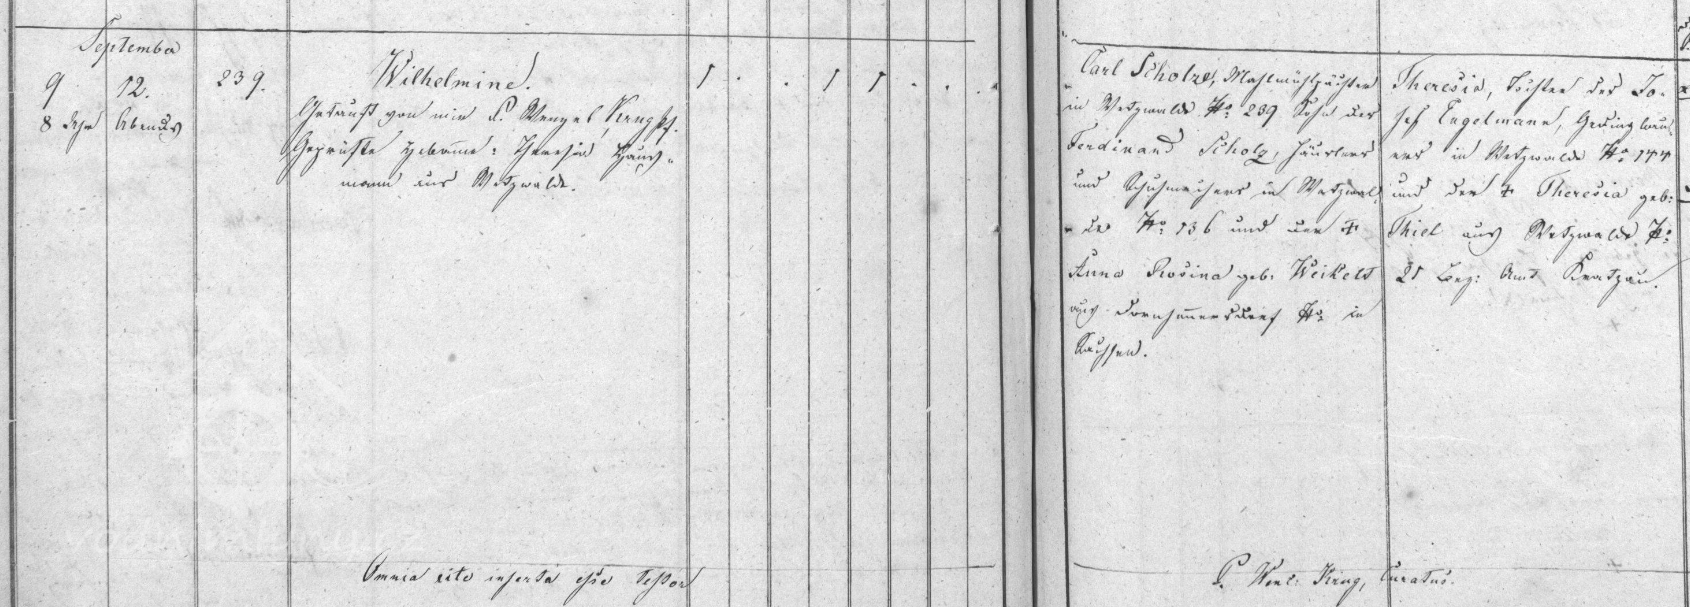 September
9 12. 239. Wilhelmine.
8 Uhr Abends
Getauft von mir P. Wenzel Krug
Geprüfte Hebamme: Theresia Haus-
mann aus Wetzwalde.
Carl Scholze, Mahlmühlpächter
in Wetzwalde No: 239 Sohn des
Ferdinand Scholz, Häuslers
und Schuhmachers in Wetzwal-
de No: 136 und der †
Anna Rosina geb: Weikelt
aus Dornhennersdorf No: in
Sachsen.
Theresia, Tochter des Jo-
sef Engelmann, Gedingbau-
ers in Wetzwalde No: 144
und der † Theresia geb:
Thiel aus Wetzwalde No:
21 Bez: Amt Kratzau.
Omnia rite inserta esse testor
P. Wenc: Krug, Curatus.